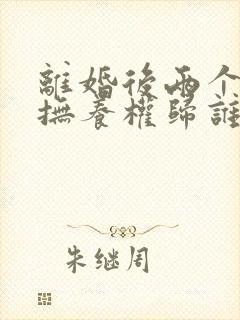 離婚後兩个
撫養權歸誰
朱继周